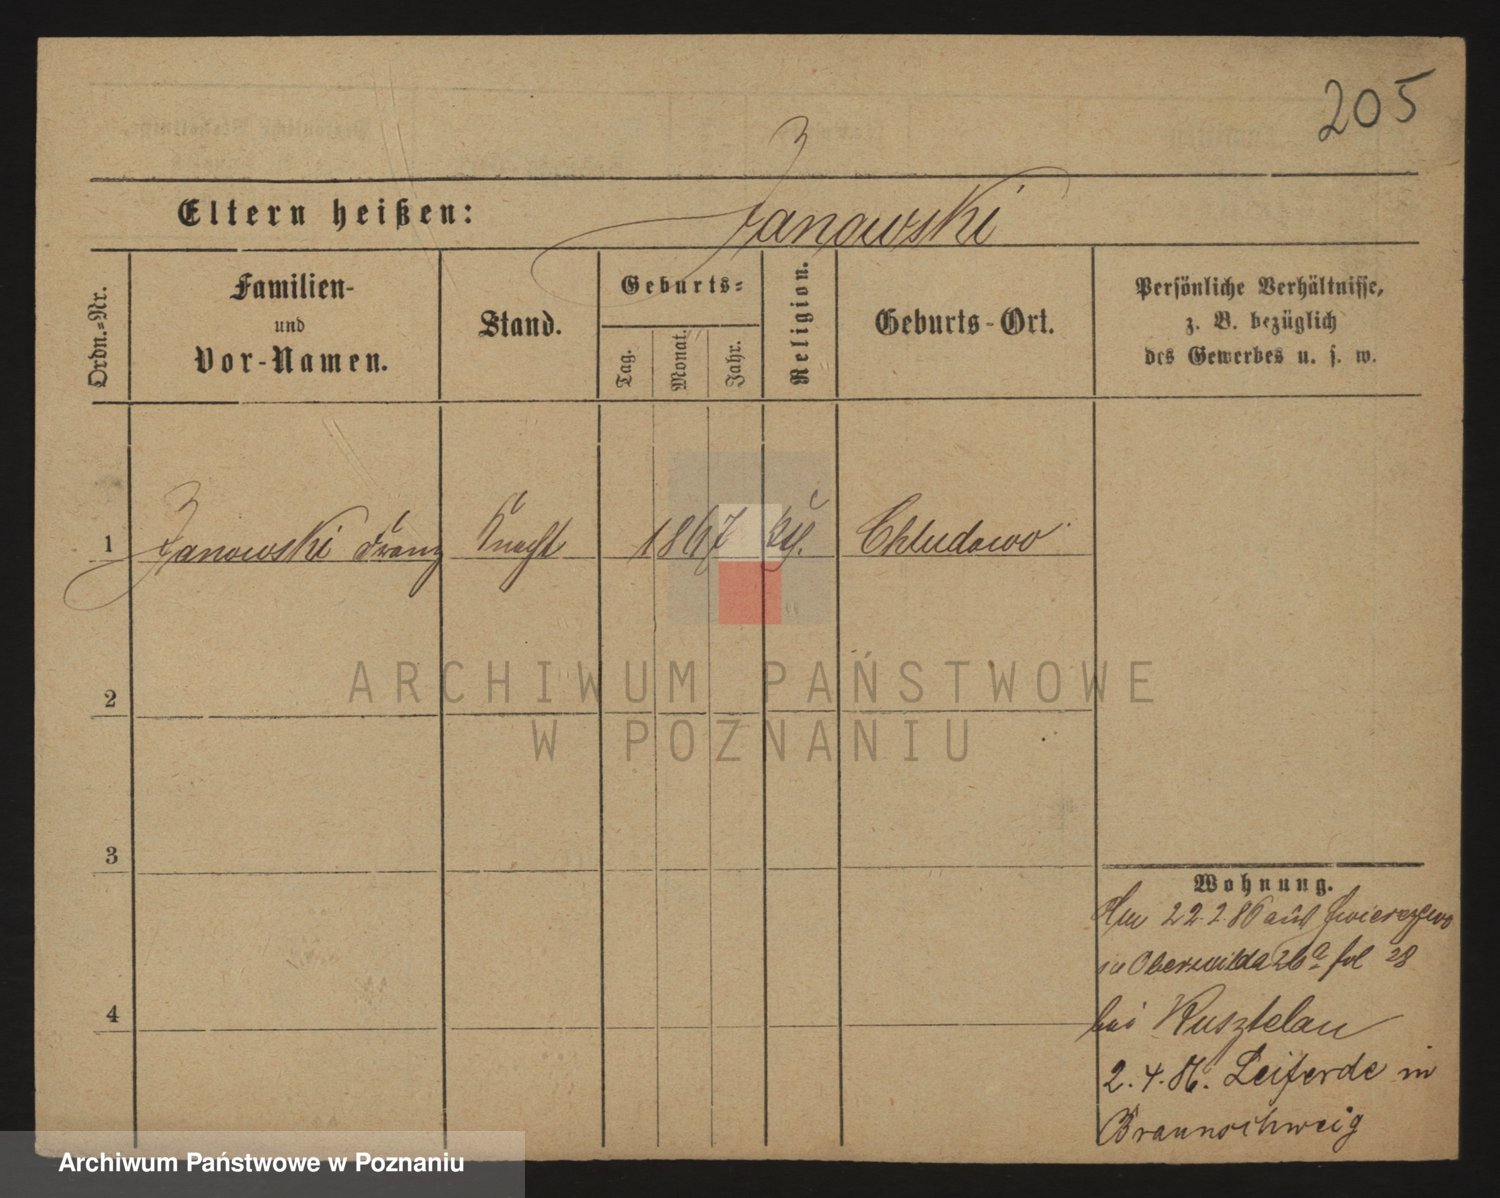 205
Eltern heißen: Janowski
Ordn.=Nr.
Familien-
und
Vor-Namen.
Stand.
Geburts=
Tag.
Monat.
Jahr.
Religion.
Geburts-Ort.
Persönliche Verhältnisse,
z. B. bezüglich
des Gewerbes u. s. w.
1 Janowski Franz Knecht 1867 kth. Chludowo
2
3
4
Wohnung.
Am 22.2.86 aus
in Oberwilda 26a fol 28
bei Kusztelau
2.4.86. Leiferde in
Braunschweig
ARCHIWUM PAŃSTWOWE
W POZNANIU
Archiwum Państwowe w Poznaniu